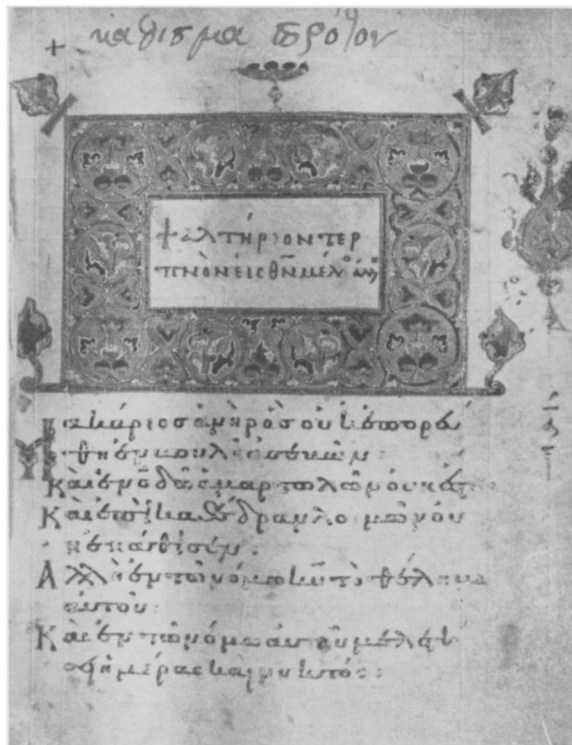 + κάθισμα πρῶτον
ψαλτήριον τερ
πνὸν εἰς θν μέλος
Μακάριος ἀνὴρ ὃς οὐκ ἐπορεύ
θη ἐν βουλῇ ἀσεβῶν:
Καὶ ἐν ὁδῷ ἁμαρτωλῶν οὐκ ἔστη
Καὶ ἐπὶ καθέδραν λοιμῶν οὐκ
ἐκάθισεν:
Ἀλλ' ἢ ἐν τῷ νόμῳ κυ τὸ θέλημα
αὐτοῦ:
Καὶ ἐν τῷ νόμῳ αὐτοῦ μελετ
ἡμέρας καὶ νυκτός: